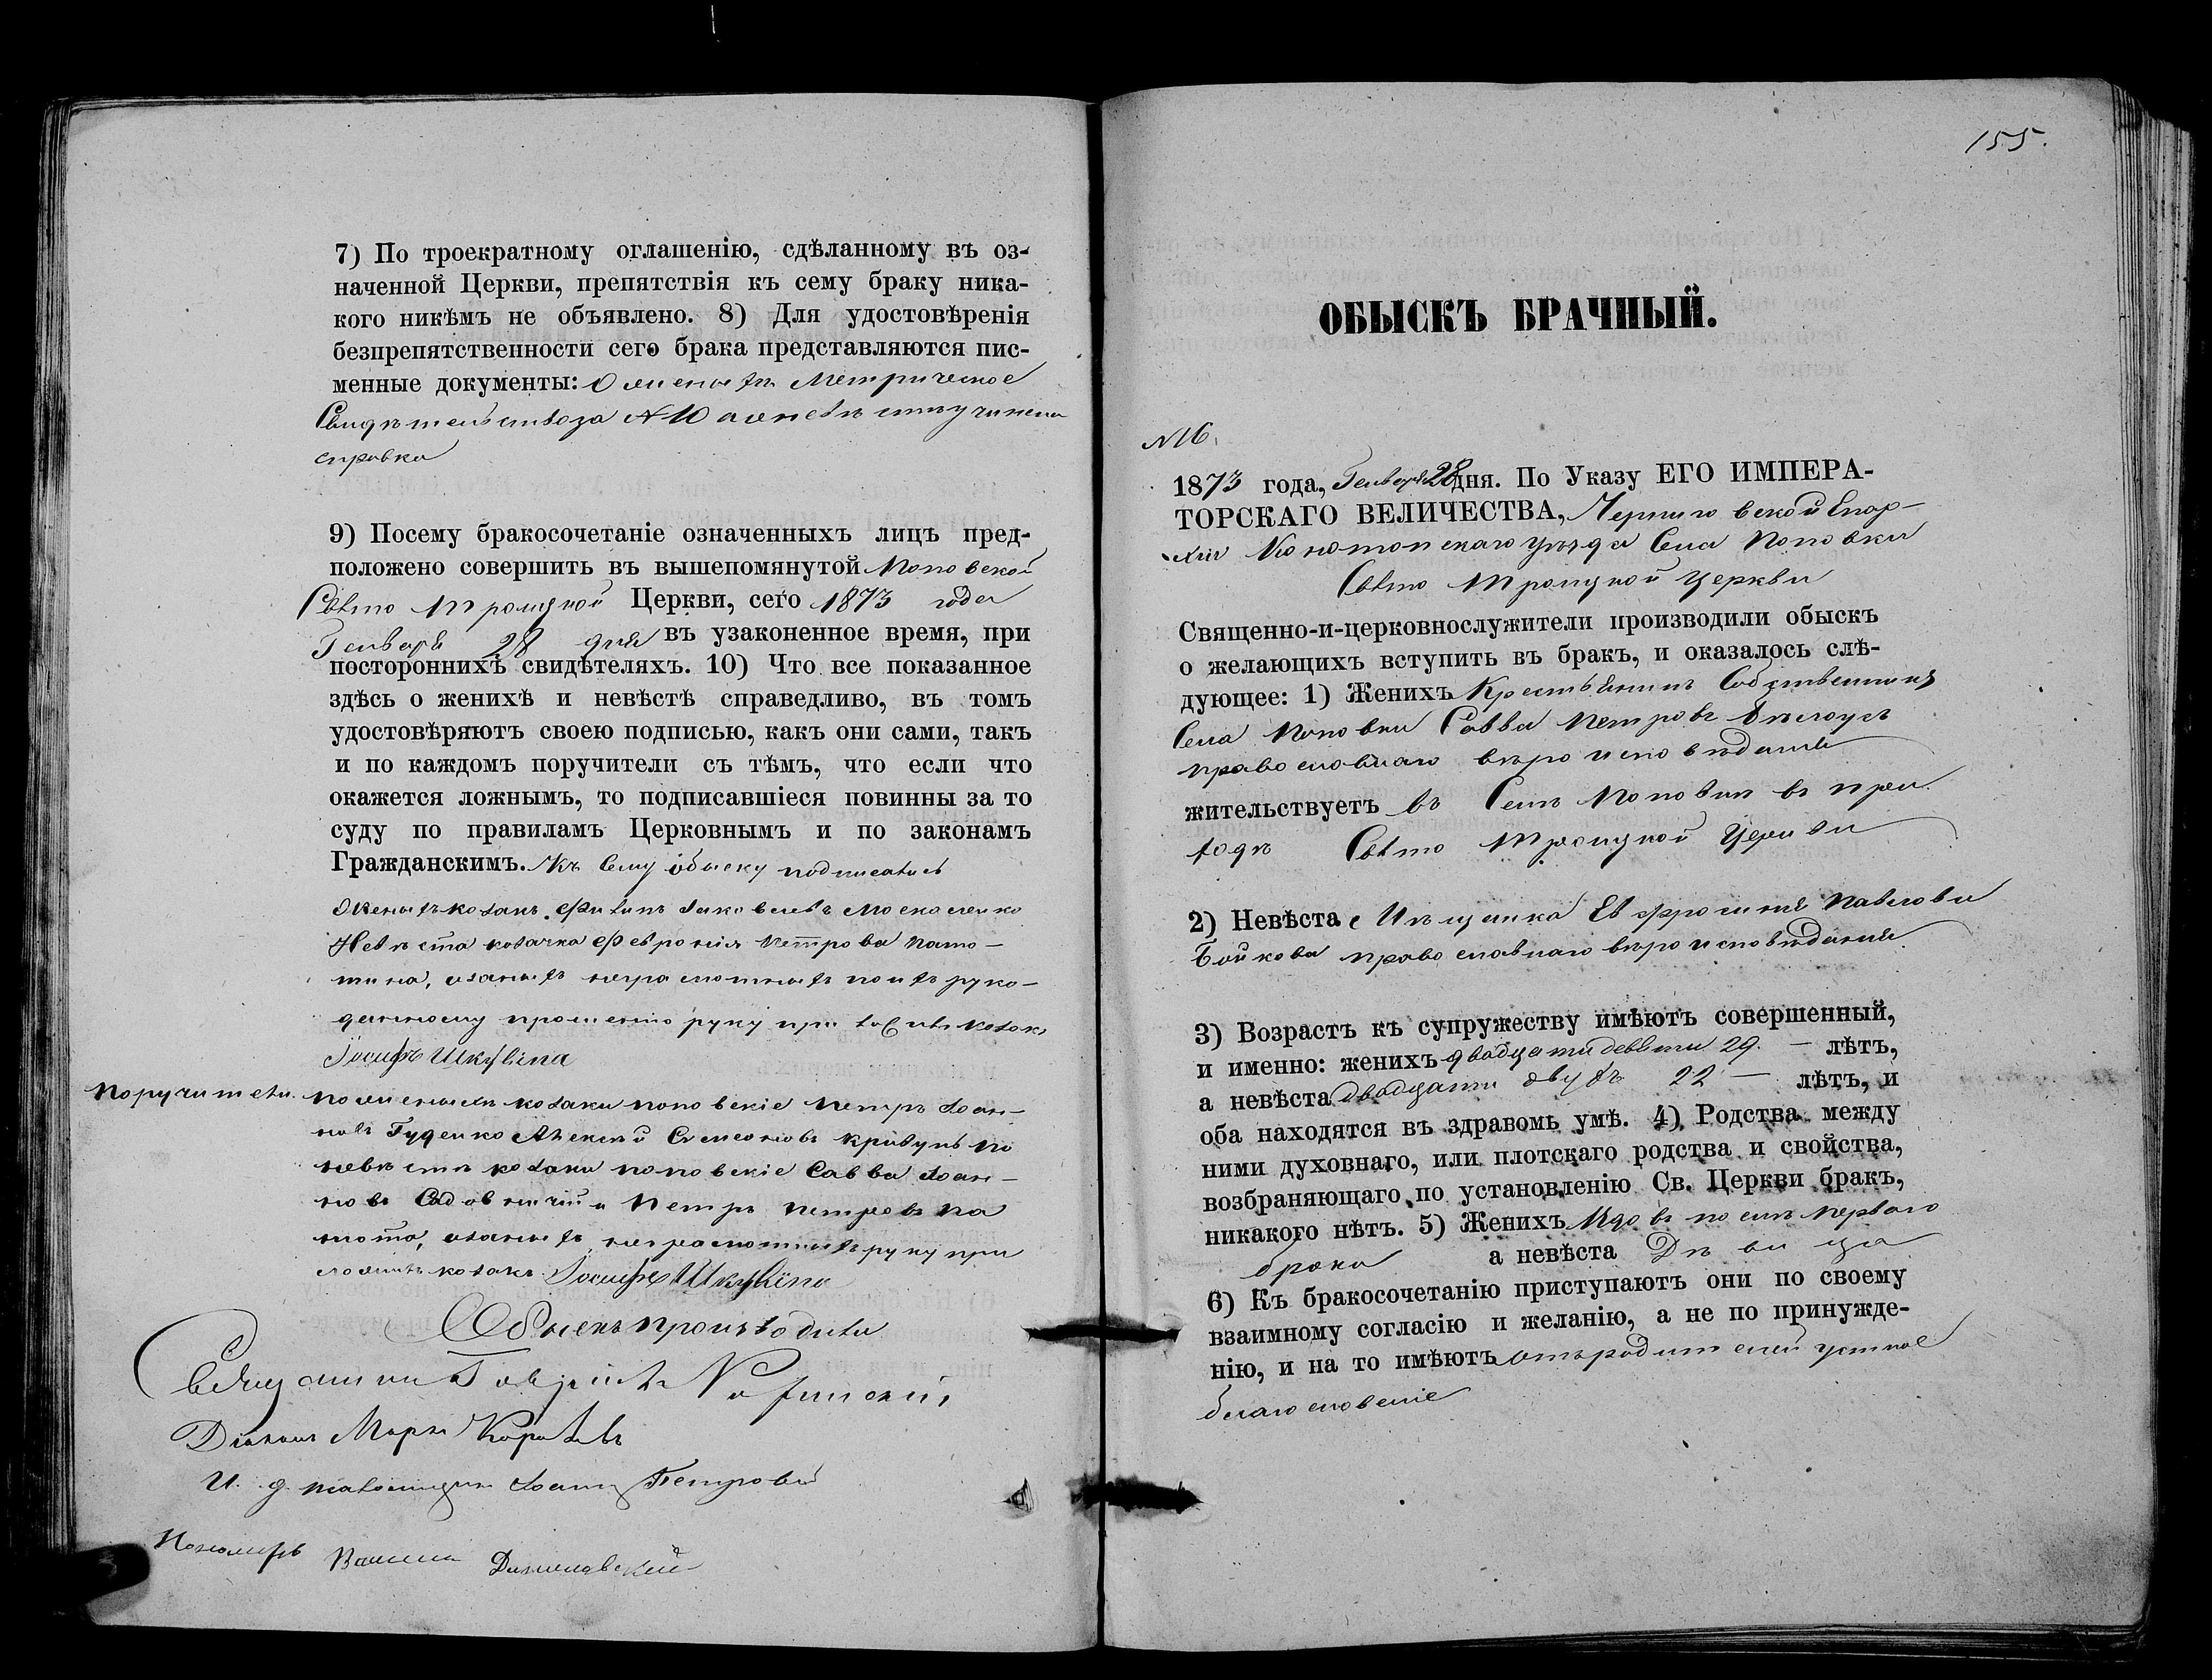 7) По троекратному оглашенію, сдѣланному въ оз-
наченной Церкви, препятствія къ сему браку ника-
кого никѣмъ не объявлено. 8) Для удостовѣренія
безпрепятственности сего брака представляются пис-
менные документы: О женихѣ Метрическое
Свидѣтельство за №10 а о невѣстѣ учинена
справка
9) Посему бракосочетаніе означенныхъ лицъ пред-
положено совершить въ вышепомянутой Поповской
Свято Троицкой Церкви, сего 1873 года
Генваря 28 дня въ узаконенное время, при
постороннихъ свидѣтеляхъ. 10) Что все показанное
здѣсь о женихѣ и невѣстѣ справедливо, въ томъ
удостовѣряютъ своею подписью, какъ они сами, такъ
и по каждомъ поручители съ тѣмъ, что если что
окажется ложнымъ, то подписавшіеся повинны за то
суду по правиламъ Церковнымъ и по законамъ
Гражданскимъ. Къ сему обыску подписались
Женихъ козакъ Филипъ Яковлевъ Москаленко
Невѣста козачка Феѵронія Петрова Пато-
тина, а за нихъ неграмотныхъ по ихъ руко-
данному прошенію руку приложилъ козакъ
Іосифъ Шкуріпа
Поручители
по женихѣ козаки поповскіе Петръ Іоан-
новъ Гуденко Алексѣй Симеоновъ Кривунъ по
невѣстѣ козаки поповскіе Савва Іоан-
новъ Садовничій и Петръ Петровъ Па
тота, а за нихъ неграмотныхъ руку при
ложилъ козакъ Іосифъ Шкуріпа
Обыскъ производили
Священникъ Гавріилъ
Діаконъ Маркъ Королевъ
И. д. псаломщика Іоаннъ Петровъ
Пономарь Василій
155.
ОБЫСКЪ БРАЧНЫЙ.
№ 16.
1873 года, Генваря 28 дня. По Указу ЕГО ИМПЕРА-
ТОРСКАГО ВЕЛИЧЕСТВА, Черниговской Епар-
хіи Конотопскаго уѣзда Села Поповки
Свято Троицкой Церкви
Священно-и-церковнослужители производили обыскъ
о желающихъ вступить въ бракъ, и оказалось слѣ-
дующее: 1) Женихъ Крестьянинъ Собственникъ
Села Поповки Савва Петровъ Бѣлоусъ
православнаго вѣроисповѣданія
жительствуетъ въ Селѣ Поповкѣ въ при-
ходѣ Свято Троицкой Церкви
2) Невѣста Мѣщанка Евфросинія Павлова
Бойкова православнаго вѣроисповѣданія
3) Возрастъ къ супружеству имѣютъ совершенный,
и именно: женихъ двадцати девяти 29. — лѣтъ,
а невѣста двадцати двухъ 22 — лѣтъ, и
оба находятся въ здравомъ умѣ. 4) Родства между
ними духовнаго, или плотскаго родства и свойства,
возбраняющаго по установленію Св. Церкви бракъ,
никакого нѣтъ. 5) Женихъ Вдовъ послѣ перваго
брака а невѣста Дѣвица
6) Къ бракосочетанію приступаютъ они по своему
взаимному согласію и желанію, а не по принужде-
нію, и на то имѣютъ отъ родителей устное
благословеніе